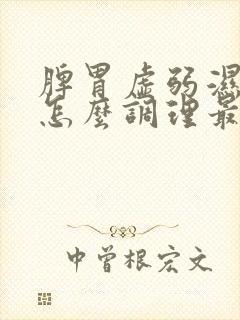 脾胃虛弱濕
怎麼調理最
中曾根宏文